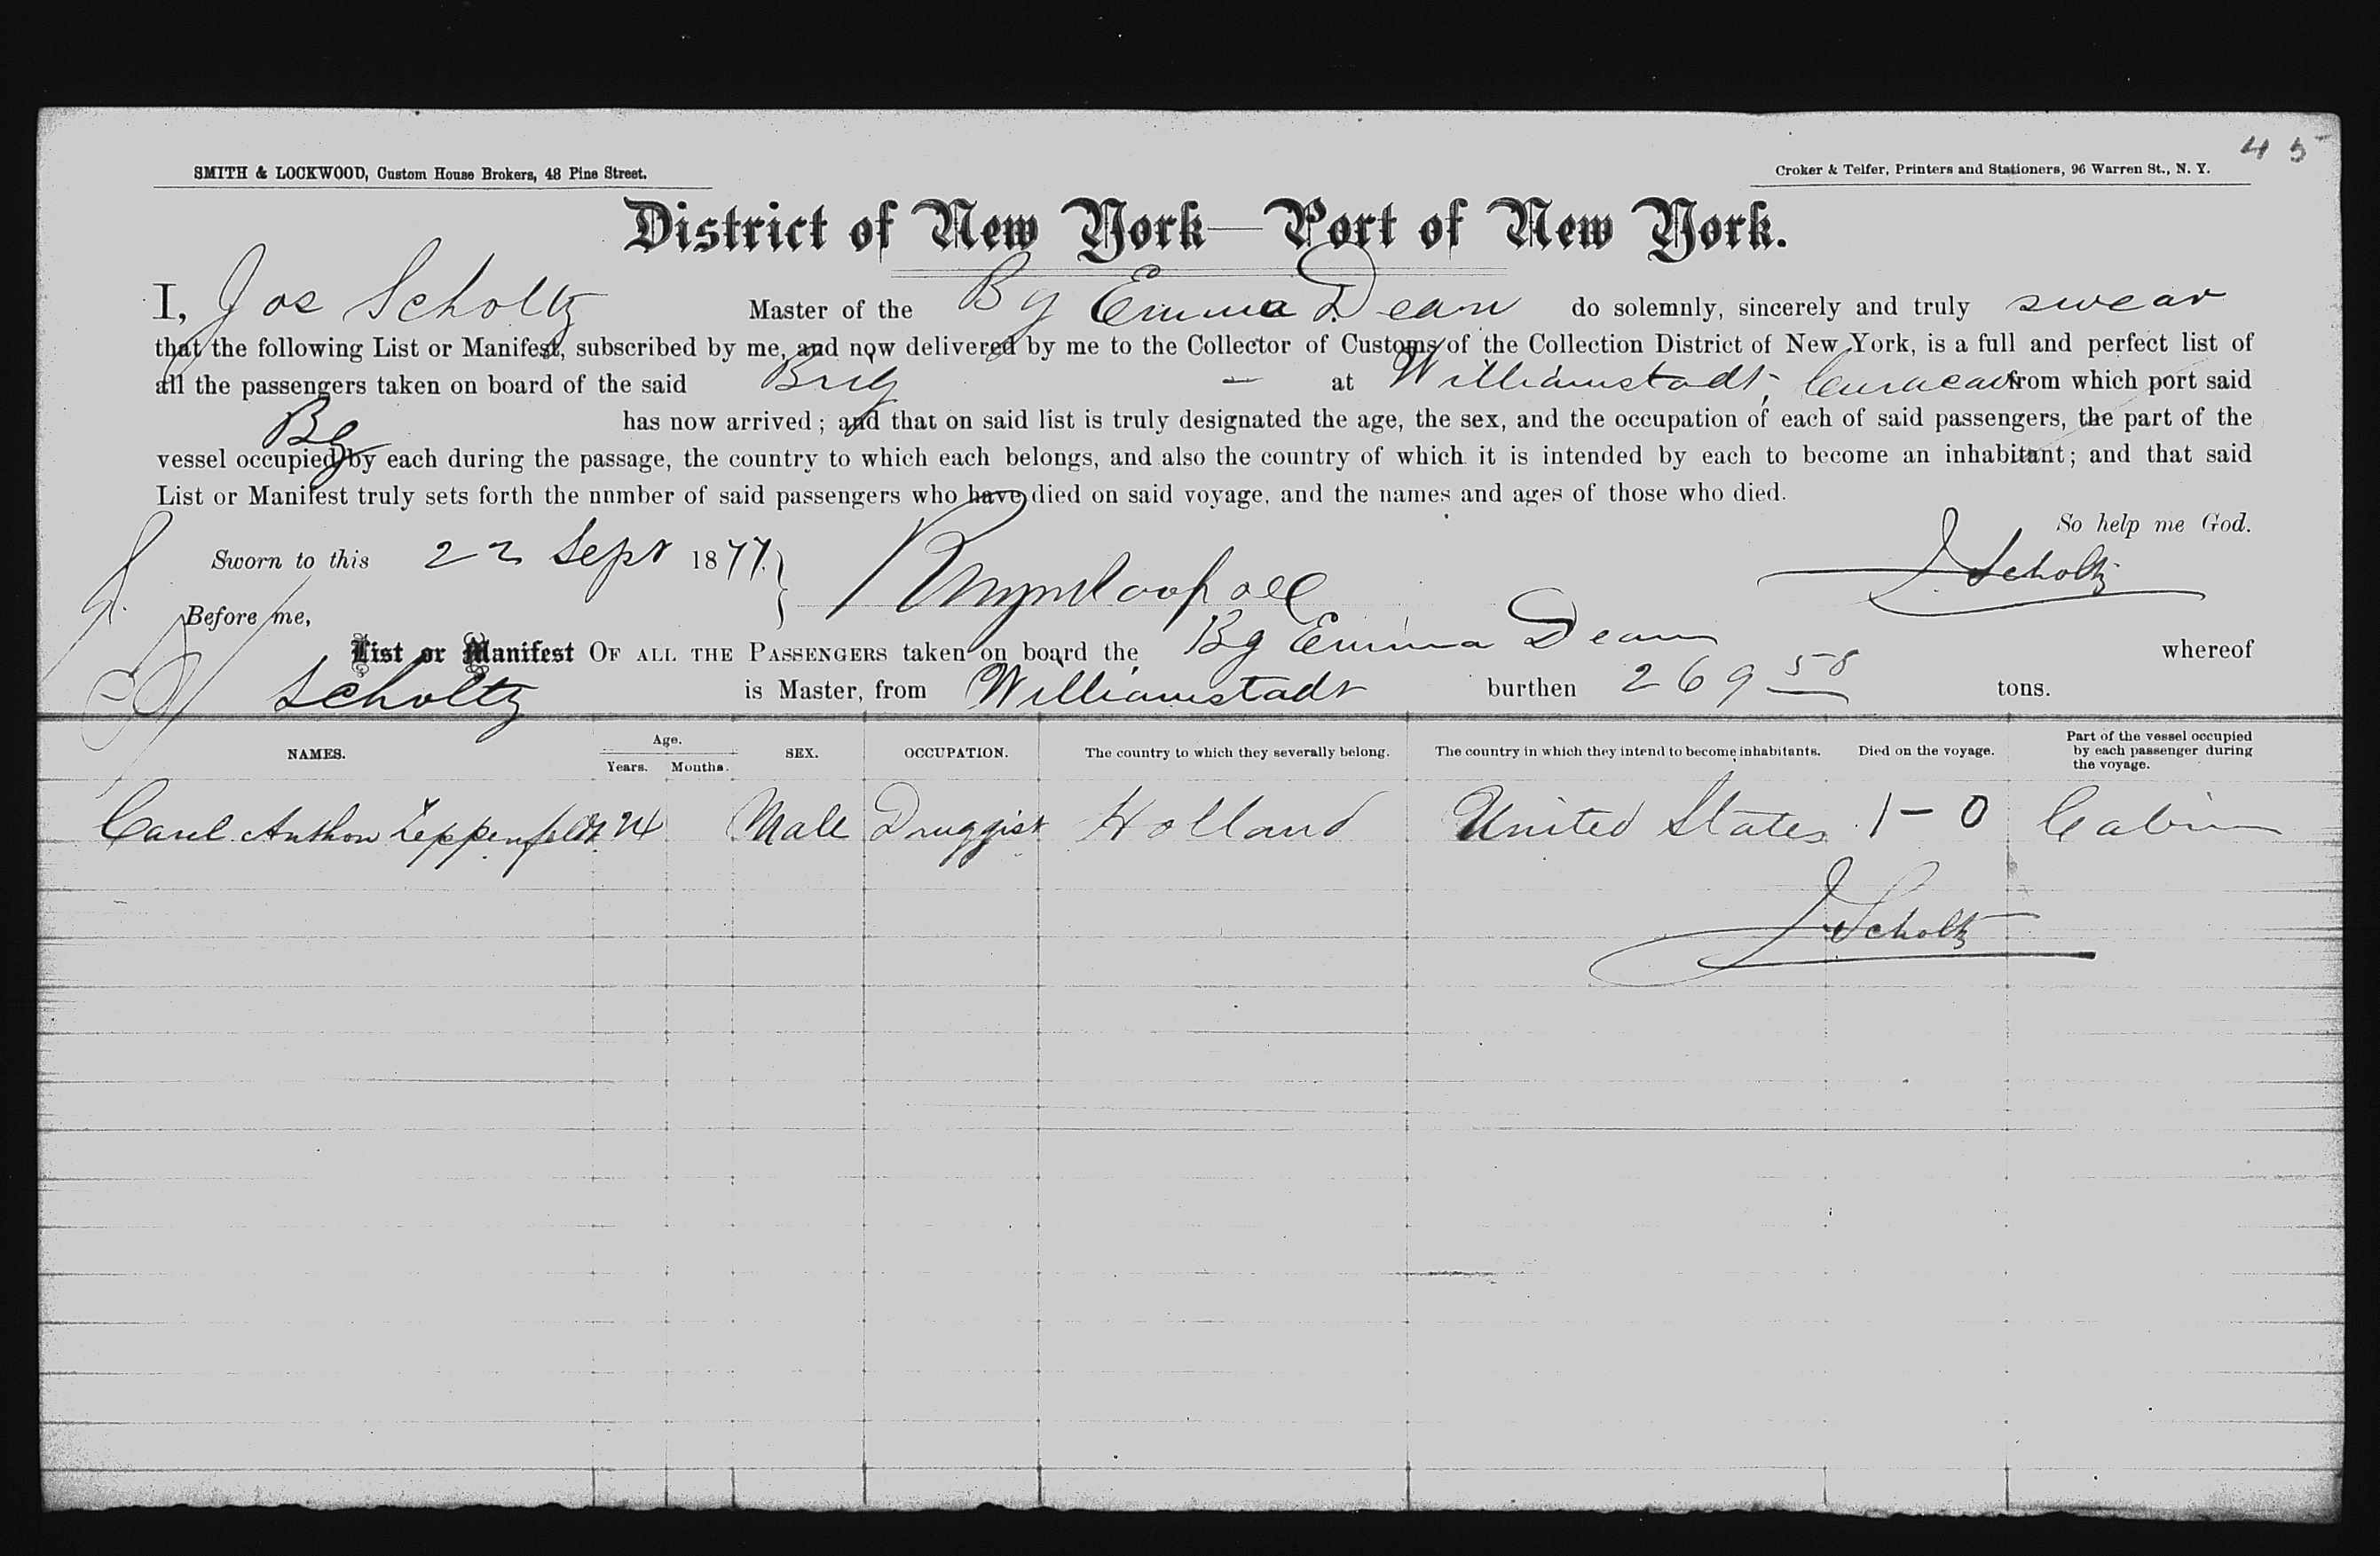 45
SMITH & LOCKWOOD, Custom House Brokers, 48 Pine Street.
Croker & Telfer, Printers and Stationers, 96 Warren St., N. Y.
District of New York—Port of New York.
I, Jos Scholtz Master of the Bg Emma Dean do solemnly, sincerely and truly swear
that the following List or Manifest, subscribed by me, and now delivered by me to the Collector of Customs of the Collection District of New York, is a full and perfect list of
all the passengers taken on board of the said Brig — at Williamstadt, Curacao from which port said
Bg has now arrived; and that on said list is truly designated the age, the sex, and the occupation of each of said passengers, the part of the
vessel occupied by each during the passage, the country to which each belongs, and also the country of which it is intended by each to become an inhabitant; and that said
List or Manifest truly sets forth the nnmber of said passengers who have died on said voyage, and the names and ages of those who died.
So help me God.
Sworn to this 22 Sept 1877.
J Scholtz
Before me,
List or Manifest OF ALL THE PASSENGERS taken on board the Bg Emma Dean whereof
Scholtz is Master, from Williamstadt burthen 269 58 tons.
NAMES. Age. Years. Months. SEX. OCCUPATION. The country to which they severally belong. The country in which they intend to become inhabitants. Died on the voyage. Part of the vessel occupied by each passenger during the voyage.
Carel Anthon Zeppenfeldt 24 Male Druggist Holland United States 1-0 Cabin
J Scholtz